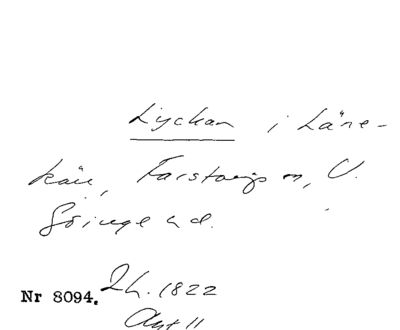 Lyckan i Läne-
kärr, Farstorps sn, V.
Göinge hd.
Nr 8094. Lh. 1822
Akt 11